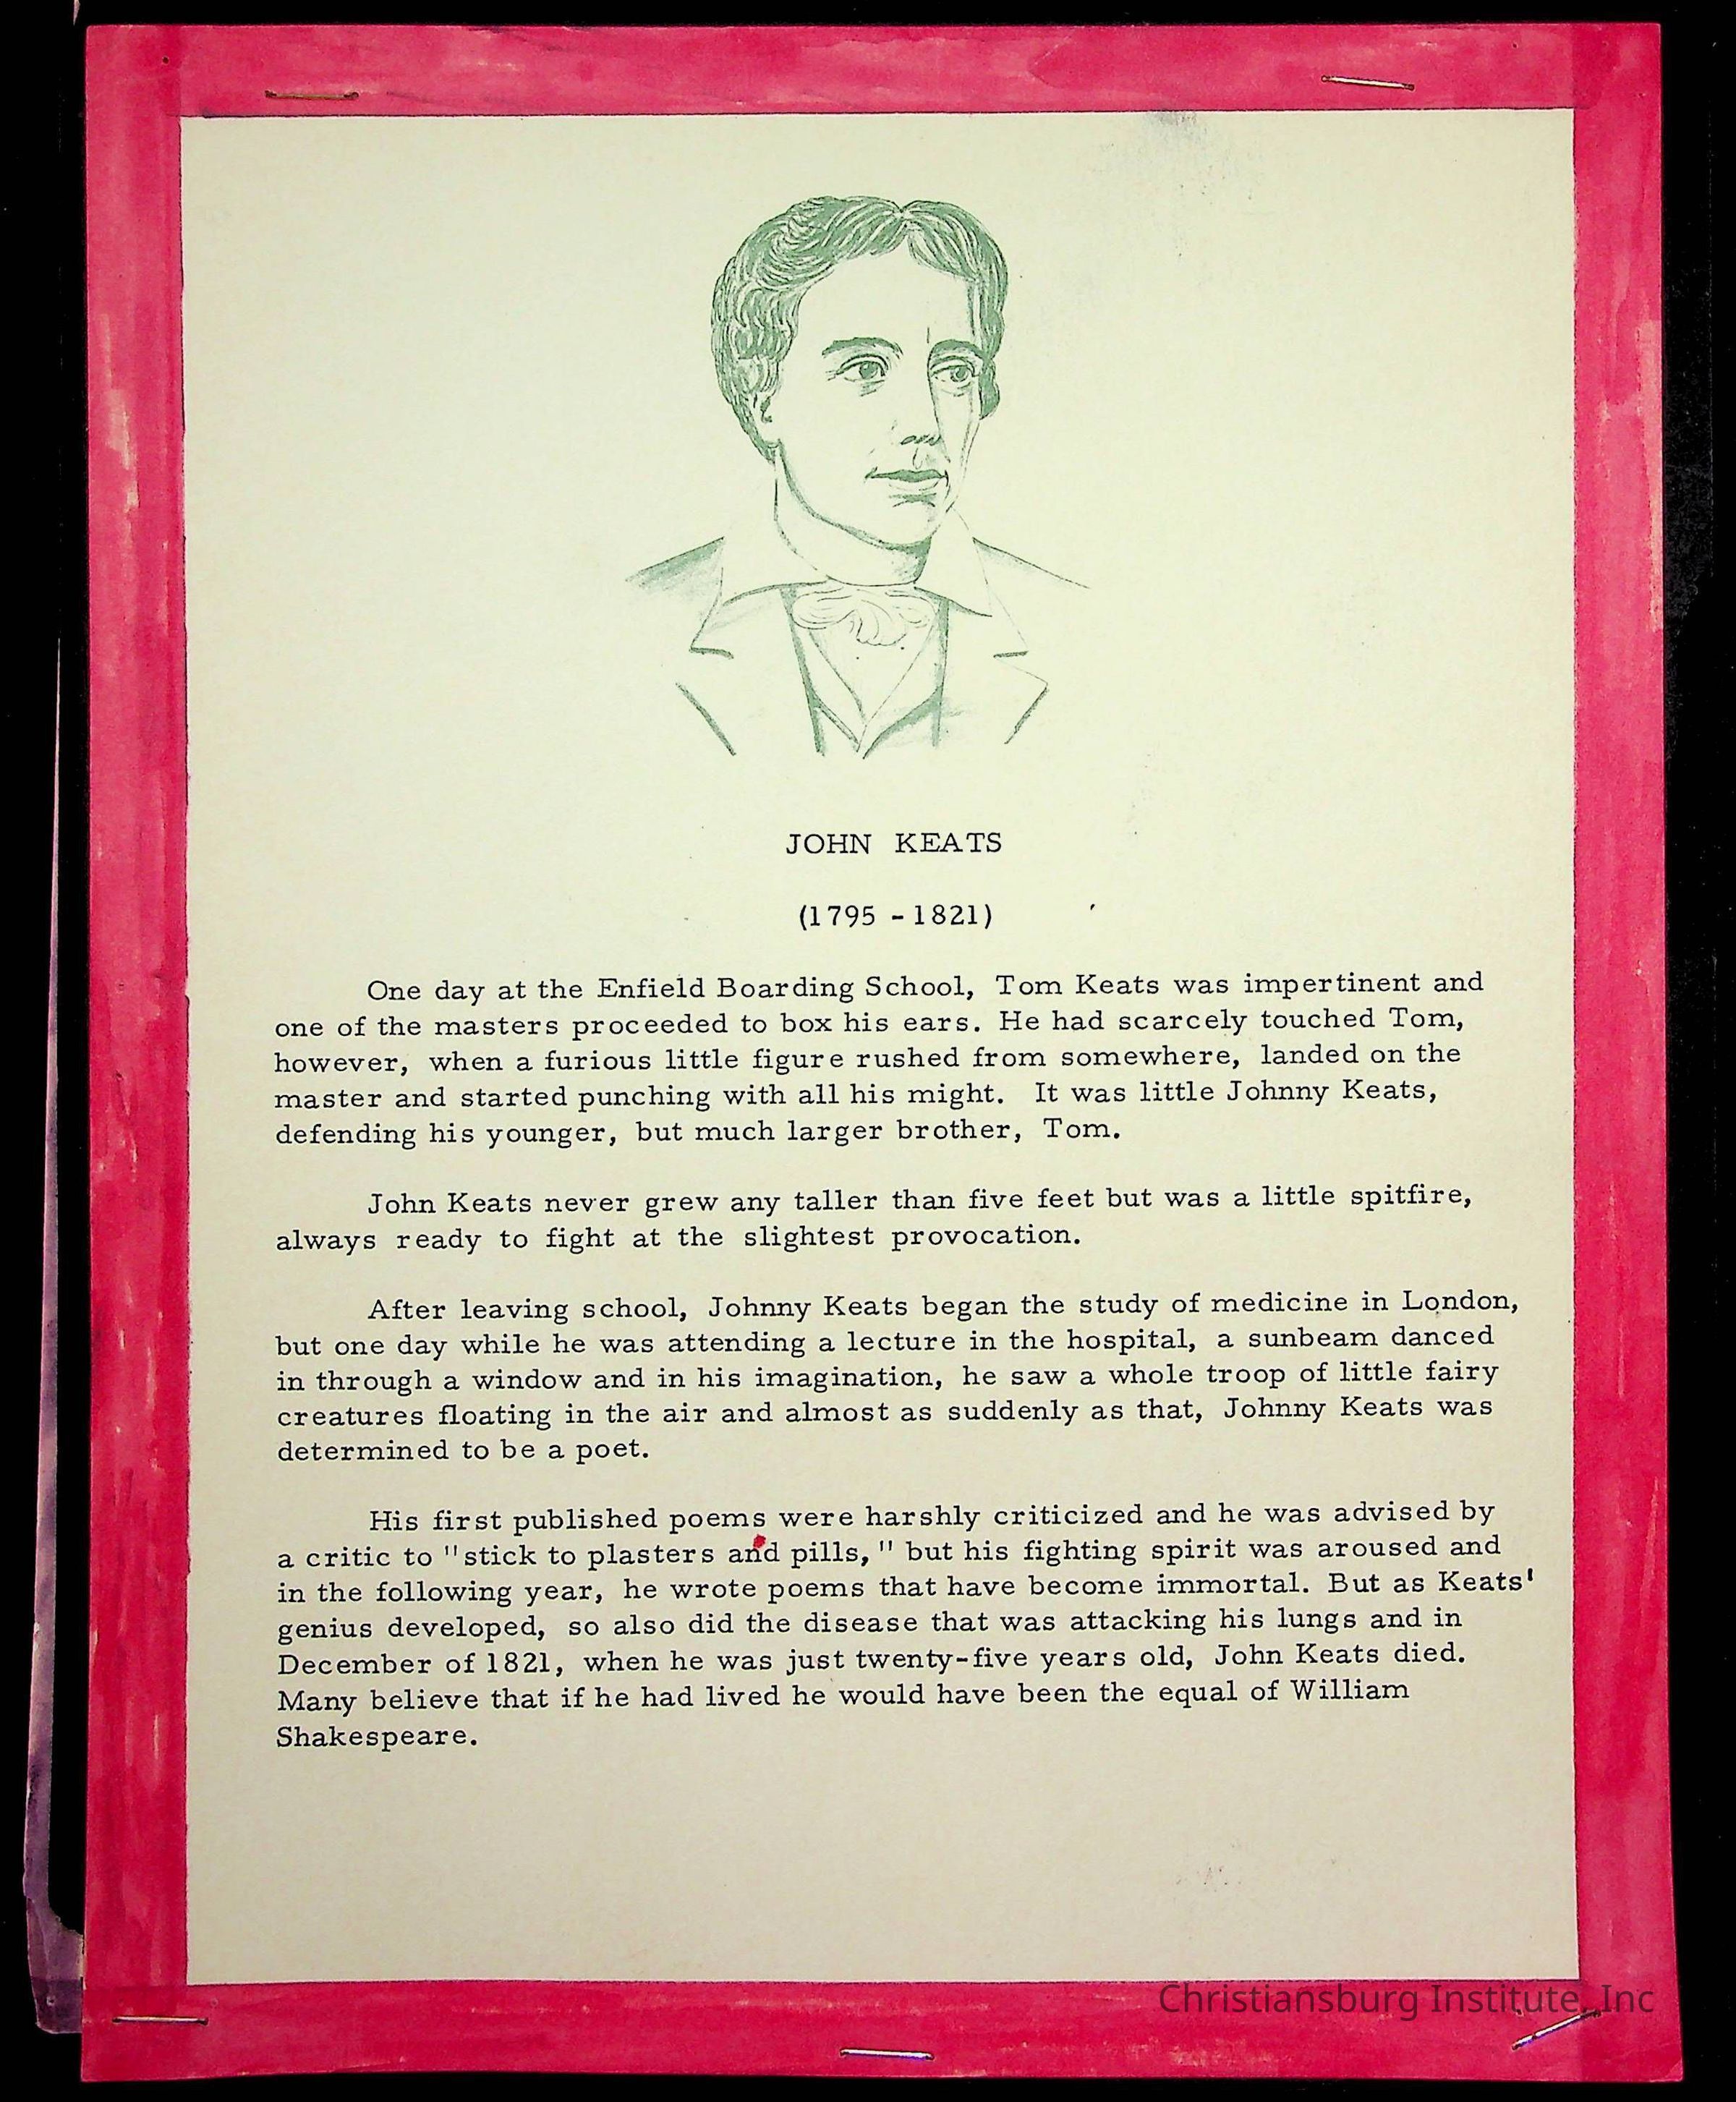 JOHN KEATS
(1795 - 1821)
One day at the Enfield Boarding School, Tom Keats was impertinent and
one of the masters proceeded to box his ears. He had scarcely touched Tom,
however, when a furious little figure rushed from somewhere, landed on the
master and started punching with all his might. It was little Johnny Keats,
defending his younger, but much larger brother, Tom.
John Keats never grew any taller than five feet but was a little spitfire,
always ready to fight at the slightest provocation.
After leaving school, Johnny Keats began the study of medicine in London,
but one day while he was attending a lecture in the hospital, a sunbeam danced
in through a window and in his imagination, he saw a whole troop of little fairy
creatures floating in the air and almost as suddenly as that, Johnny Keats was
determined to be a poet.
His first published poems were harshly criticized and he was advised by
a critic to "stick to plasters and pills," but his fighting spirit was aroused and
in the following year, he wrote poems that have become immortal. But as Keats'
genius developed, so also did the disease that was attacking his lungs and in
December of 1821, when he was just twenty-five years old, John Keats died.
Many believe that if he had lived he would have been the equal of William
Shakespeare.
Christiansburg Institute, Inc